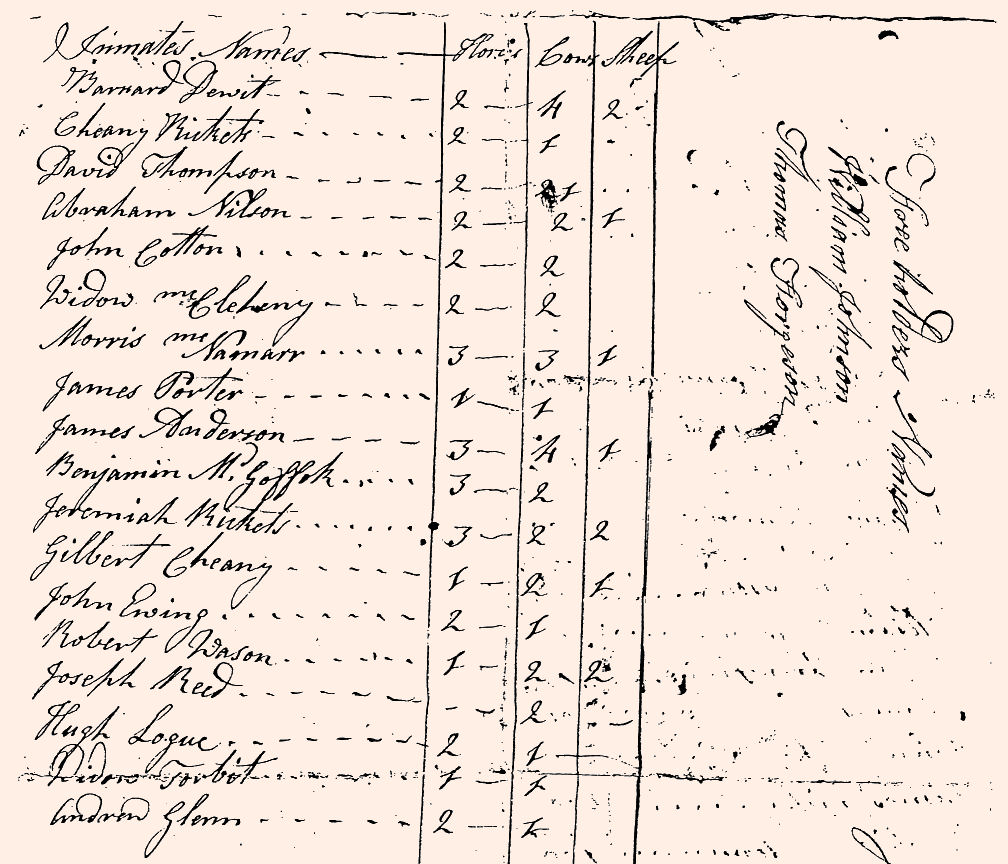 Inmates Names Horses Cows Sheep
Barnard Dewit 2 4 2
Cheany Rickets 2 1
David Thompson 2 1
Abraham Nilson 2 2 1
John Cotton 2 2
Widow mcCleheny 2 2
Morris mcNamarr 3 3 1
James Porter 1 1
James Anderson 3 4 1
Benjamin 3 2
Jeremiah Rickets 3 2 2
Gilbert Cheany 1 2 1
John Ewing 2 1
Robert Wason 1 2 2
Joseph Reed 2
Hugh Logue 2 1
Widow Torbit 1 1
Andrew Glenn 2 1
Names
William Johnson
Thomas Forgeson